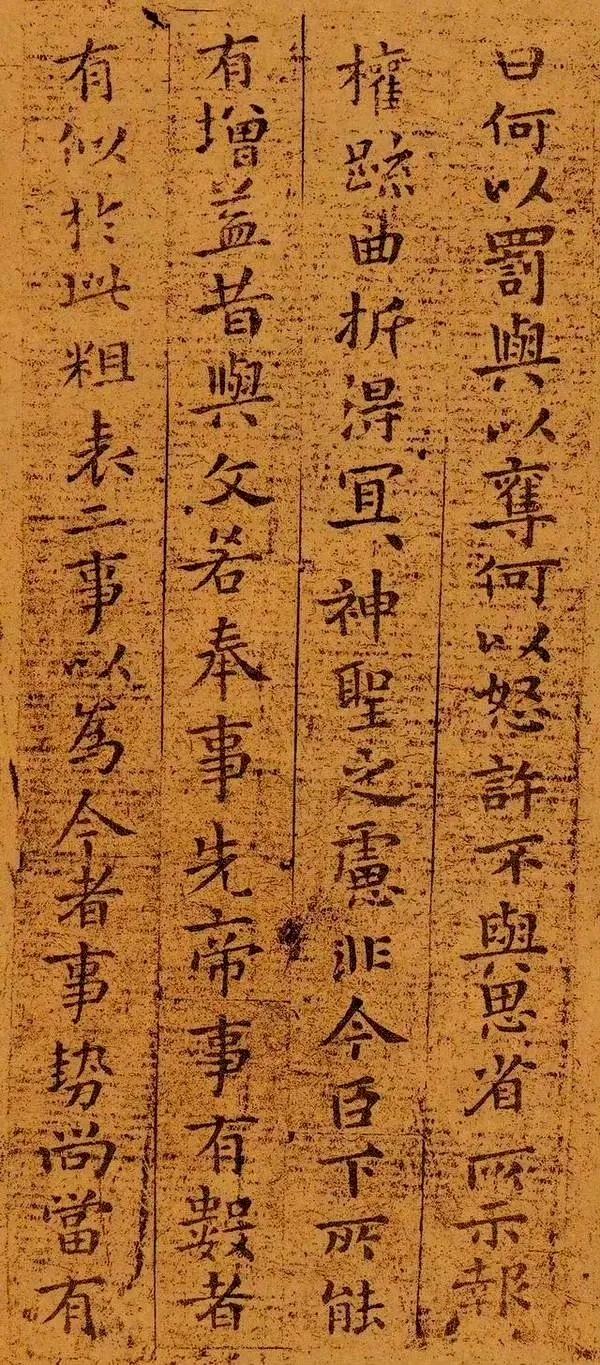 曰何以罰與以奪何以怒許不與思省所示報
權疏曲折得冝、神聖之慮非今臣下所能
有增益昔與文若奉事先帝事有數者
有似於此粗表二事以為今者事勢尚當有